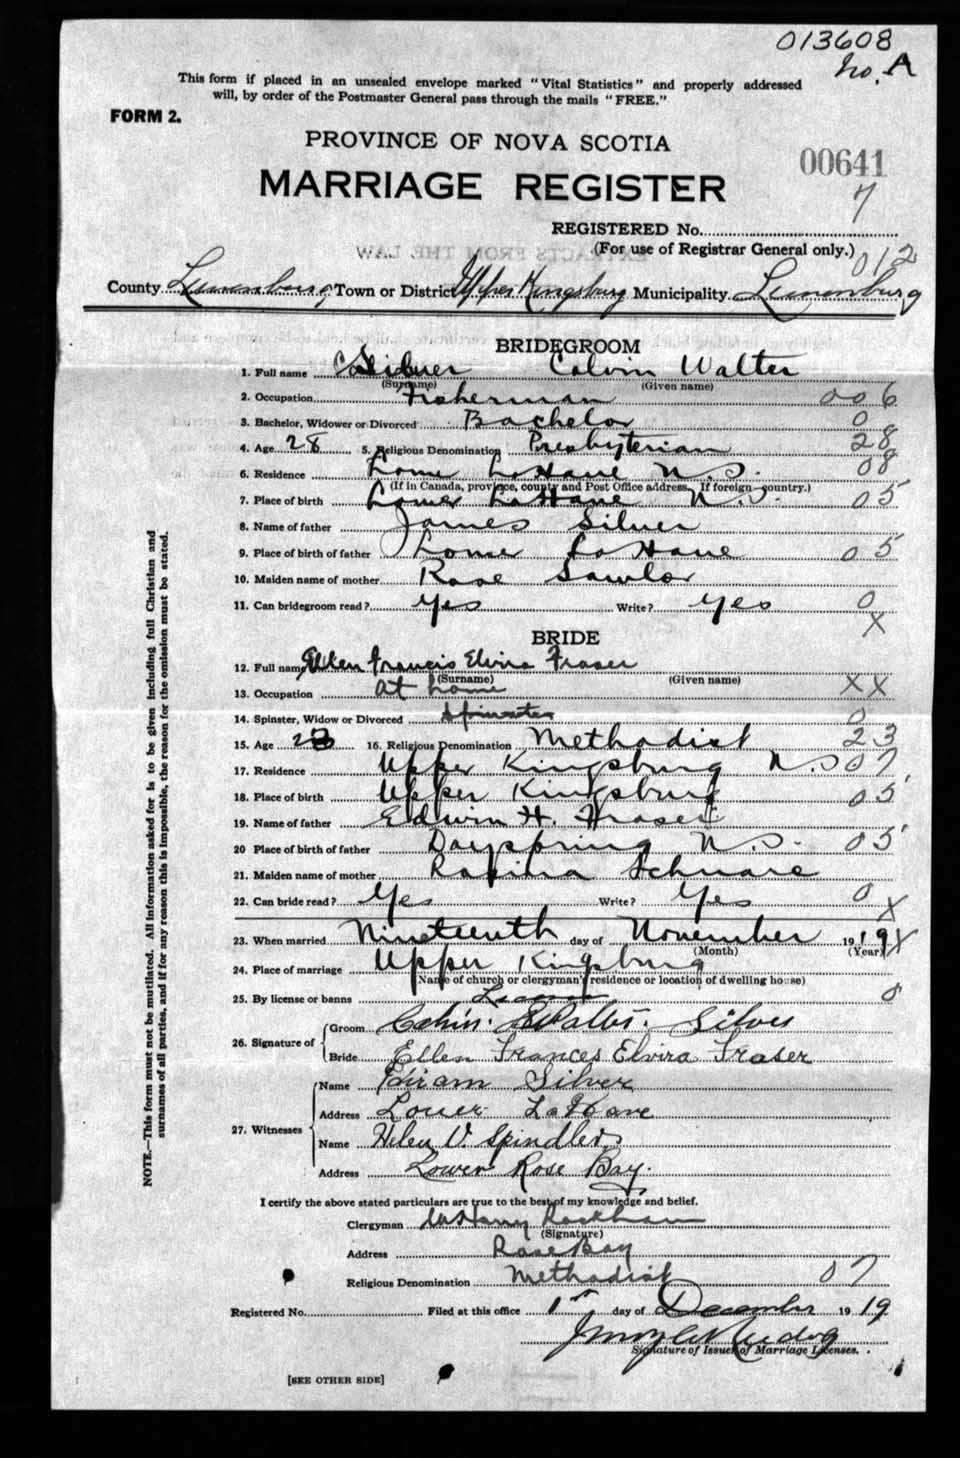 013608
No. A
This form if placed in an unsealed envelope marked "Vital Statistics" and properly addressed
will, by order of the Postmaster General pass through the mails "FREE."
FORM 2.
PROVINCE OF NOVA SCOTIA
00641
MARRIAGE REGISTER
7
REGISTERED No.
(For use of Registrar General only.)
012
County Lunenburg Town or District Upper Kingsburg Municipality Lunenburg
BRIDEGROOM
1. Full name Silver Calvin Walter
(Surname) (Given name)
2. Occupation Fisherman 006
3. Bachelor, Widower or Divorced Bachelor 0
4. Age 28 5. Religious Denomination Presbyterian 28
6. Residence Lower LaHave N.S. 08
(If in Canada, province, county and Post Office address. If foreign—country.)
7. Place of birth Lower LaHave N.S. 05
8. Name of father James Silver
9. Place of birth of father Lower LaHave 05
10. Maiden name of mother Rose Sawlor
11. Can bridegroom read? Yes Write? Yes 0
X
BRIDE
12. Full name Ellen Francis Elvira Fraser
(Surname) (Given name)
13. Occupation at home XX
14. Spinster, Widow or Divorced Spinster 0
15. Age 23 16. Religious Denomination Methodist 23
17. Residence Upper Kingsburg N.S. 07
18. Place of birth Upper Kingsburg 05
19. Name of father Edwin H. Fraser
20 Place of birth of father Dayspring N.S. 05
21. Maiden name of mother Schnare
22. Can bride read? Yes Write? Yes 0
X
23. When married Nineteenth day of November 1919 X
(Month) (Year)
24. Place of marriage Upper Kingsburg
(Name of church or clergyman's residence or location of dwelling house)
25. By license or banns License 0
26. Signature of Groom Calvin Walter Silver
Bride Ellen Frances Elvira Fraser
27. Witnesses Name Hiram Silver
Address Lower LaHave
Name Helen V. Spindler
Address Lower Rose Bay.
I certify the above stated particulars are true to the best of my knowledge and belief.
Clergyman Harry Rackham
(Signature)
Address Rose Bay
Religious Denomination Methodist 07
Registered No. Filed at this office 1st day of December 1919
Signature of Issuer of Marriage Licenses.
[SEE OTHER SIDE]
NOTE.—This form must not be mutilated. All information asked for is to be given including full Christian and
surnames of all parties, and if for any reason this is impossible, the reason for the omission must be stated.